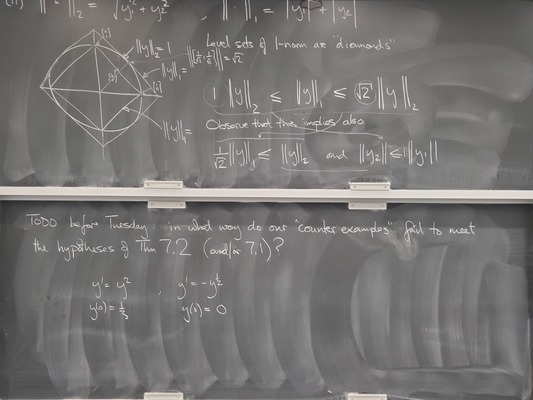 ‖·‖₂ = √(y₁² + y₂²) , ‖·‖₁ = |y₁| + |y₂|
Level sets of 1-norm are "diamonds"
‖y‖₂ = 1
‖y‖₁ = ‖[1/√2, 1/√2]‖ = √2
‖y‖₁ =
1 ‖y‖₂ ≤ ‖y‖₁ ≤ √2 ‖y‖₂
Observe that this implies also
1/√2 ‖y‖₁ ≤ ‖y‖₂ and ‖y₂‖ ≤ 1‖y₁‖
TODO before Tuesday: in what way do our "counter examples" fail to meet
the hypotheses of Thm 7.2 (and/or 7.1)?
y' = y² , y' = -y^½
y(0) = ⅓ y(0) = 0